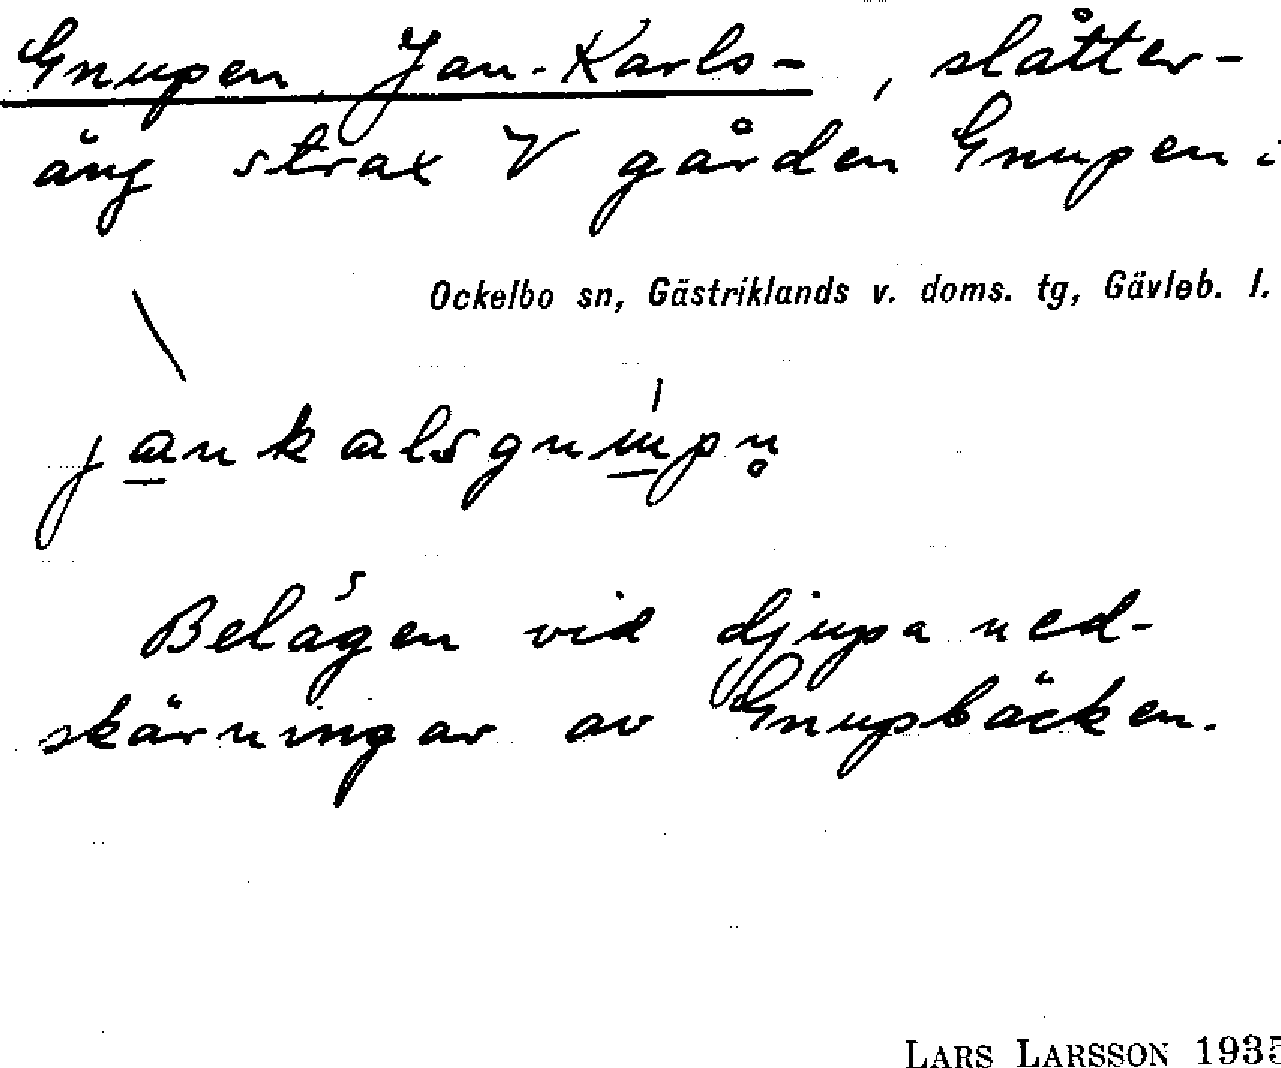 Gnupen, Jan-Karls-, slåtter-
äng strax V gården Gnupen i
Ockelbo sn, Gästriklands v. doms. tg, Gävleb. l.
Belägen vid djupa ned-
skärningar av Gnupbäcken.
LARS LARSSON 1935